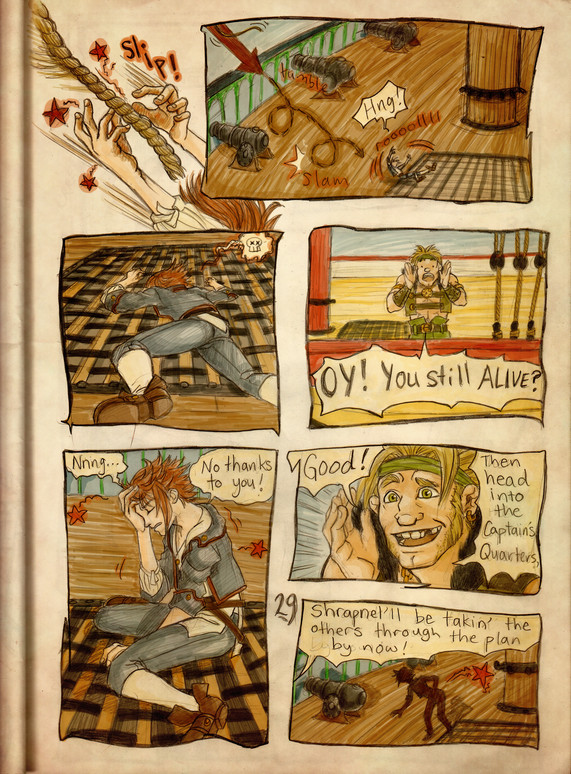 Slip!
Tumble
Hng!
roooollll
Slam
OY! You still ALIVE?
Nnng...
No thanks
to you!
Good!
Then
head
into
the
Captain's
Quarters,
29
Shrapnel'll be takin' the
others through the plan
by now!